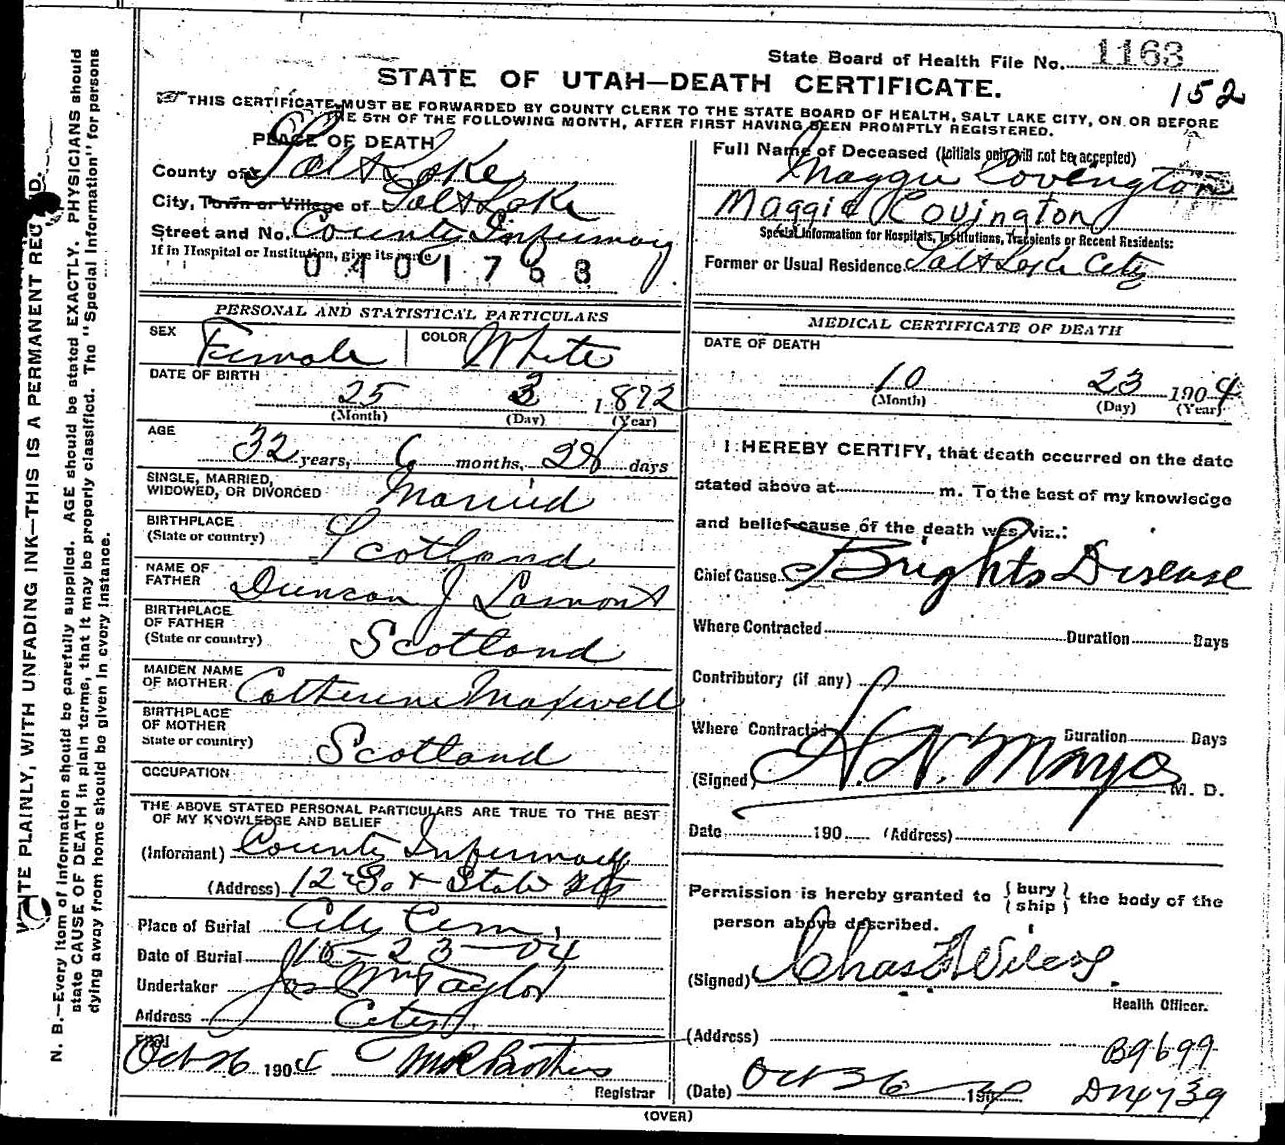 WRITE PLAINLY, WITH UNFADING INK—THIS IS A PERMANENT RECORD.
N. B.—Every item of information should be carefully supplied. AGE should be stated EXACTLY. PHYSICIANS should
state CAUSE OF DEATH in plain terms, that it may be properly classified. The "Special Information" for persons
dying away from home should be given in every instance.
State Board of Health File No. 1163
152
STATE OF UTAH—DEATH CERTIFICATE.
THIS CERTIFICATE MUST BE FORWARDED BY COUNTY CLERK TO THE STATE BOARD OF HEALTH, SALT LAKE CITY, ON OR BEFORE
THE 5TH OF THE FOLLOWING MONTH, AFTER FIRST HAVING BEEN PROMPTLY REGISTERED.
PLACE OF DEATH
County of Salt Lake
City, Town or Village of Salt Lake
Street and No. County Infirmary
If in Hospital or Institution, give its name
0401763
PERSONAL AND STATISTICAL PARTICULARS
SEX Female COLOR White
DATE OF BIRTH
25 3 1872
(Month) (Day) (Year)
AGE
32 years, 6 months, 28 days
SINGLE, MARRIED,
WIDOWED, OR DIVORCED Married
BIRTHPLACE
(State or country) Scotland
NAME OF
FATHER Duncan J Lamont
BIRTHPLACE
OF FATHER
(State or country) Scotland
MAIDEN NAME
OF MOTHER Catherine Maxwell
BIRTHPLACE
OF MOTHER
State or country) Scotland
OCCUPATION
THE ABOVE STATED PERSONAL PARTICULARS ARE TRUE TO THE BEST
OF MY KNOWLEDGE AND BELIEF
(Informant) County Infirmary
(Address) 12 So & State Sts
Place of Burial City Cem.
Date of Burial 10-23-04
Undertaker Jos Wm Taylor
Address City
Filed
Oct 26 1904
Registrar
Full Name of Deceased (Initials only will not be accepted)
Maggie Covington
Maggie Covington
Special Information for Hospitals, Institutions, Transients or Recent Residents:
Former or Usual Residence Salt Lake City
MEDICAL CERTIFICATE OF DEATH
DATE OF DEATH
10 23 1904
(Month) (Day) (Year)
I HEREBY CERTIFY, that death occurred on the date
stated above at m. To the best of my knowledge
and belief cause of the death was, viz.:
Chief Cause Brights Disease
Where Contracted Duration Days
Contributory (if any)
Where Contracted Duration Days
(Signed) H. N. Mayo M. D.
Date 190 (Address)
Permission is hereby granted to { bury } { ship } the body of the
person above described.
(Signed) Chas F Wilcox.
Health Officer.
(Address) B9699
(Date) Oct 26 1904 D114739
(OVER)